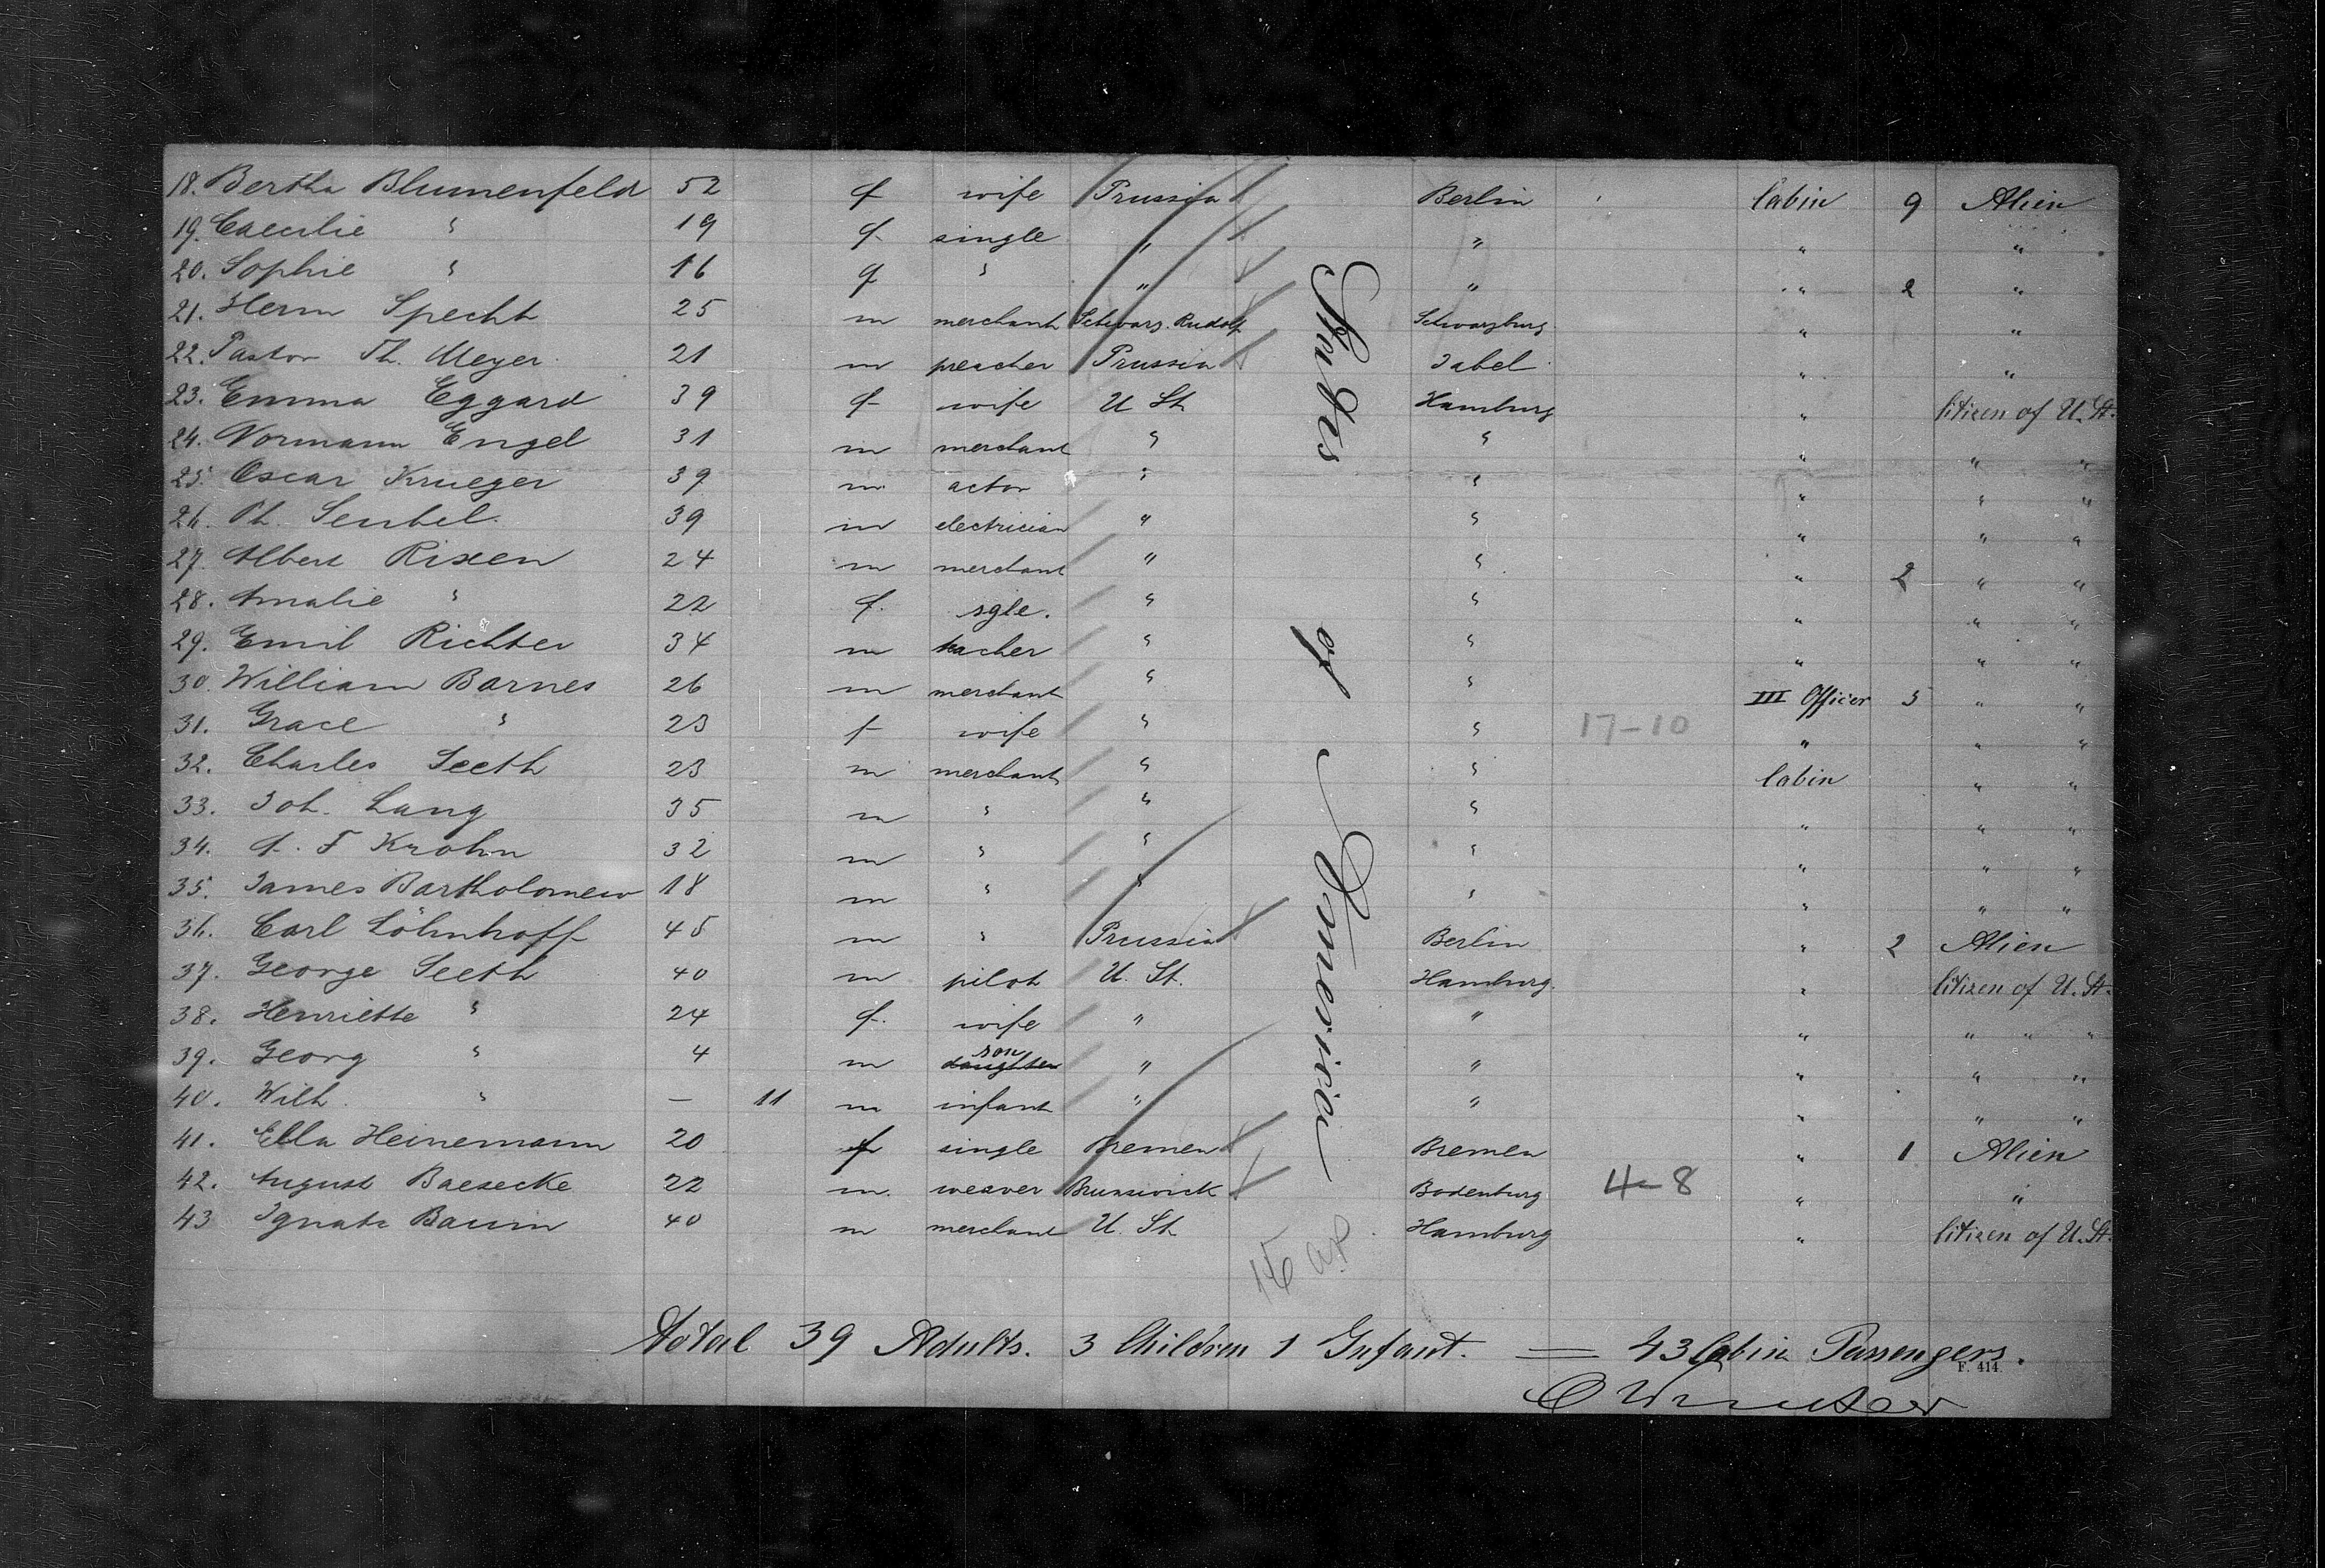 18. Bertha Blumenfeld 52 f wife Prussia Berlin Cabin 9 Alien
19. Caecilie " 19 f single " " " "
20. Sophie " 16 f " " " " 2 "
21. Herm Specht 25 m merchant Schwarz. Rudolf Schwarzburg " "
22. Pastor Th. Meyer 21 m preacher Prussia Jabel " "
23. Emma Eggard 39 f wife U St. Hamburg " Citizen of U. St.
24. Normann Engel 31 m merchant " " " " "
25. Oscar Krueger 39 m actor " " " " "
26. Ph. Senbel. 39 m electrician " " " " "
27. Albert Rixen 24 m merchant " " " 2 " "
28. Amalie " 22 f. sgle. " " " " "
29. Emil Richter 34 m teacher " " " " "
30. William Barnes 26 m merchant " " III Officer 5 " "
31. Grace " 23 f wife " " 17-10 " " "
32. Charles Seeth 23 m merchant " " Cabin " "
33. Joh. Lang 35 m " " " " " "
34. A. F Krohn 32 m " " " " " "
35. James Bartholomew 18 m " " " " " "
36. Carl Löhnhoff 45 m " Prussia Berlin " 2 Alien
37. George Seeth 40 m pilot U. St. Hamburg. " Citizen of U. St.
38. Henriette " 24 f. wife " " " " " "
39. Georg " 4 m daughter son " " " " "
40. Wilh. " — 11 m infant " " " " "
41. Ella Heinemann 20 f single Bremen Bremen " 1 Alien
42. August Baesecke 22 m. weaver Brunswick Bodenburg 4-8 " "
43 Ignatz Baum 40 m merchant U. St. Hamburg " Citizen of U. St.
States of America
Total 39 Adults. 3 Children 1 Infant. = 43 Cabin Passengers.
F. 414.